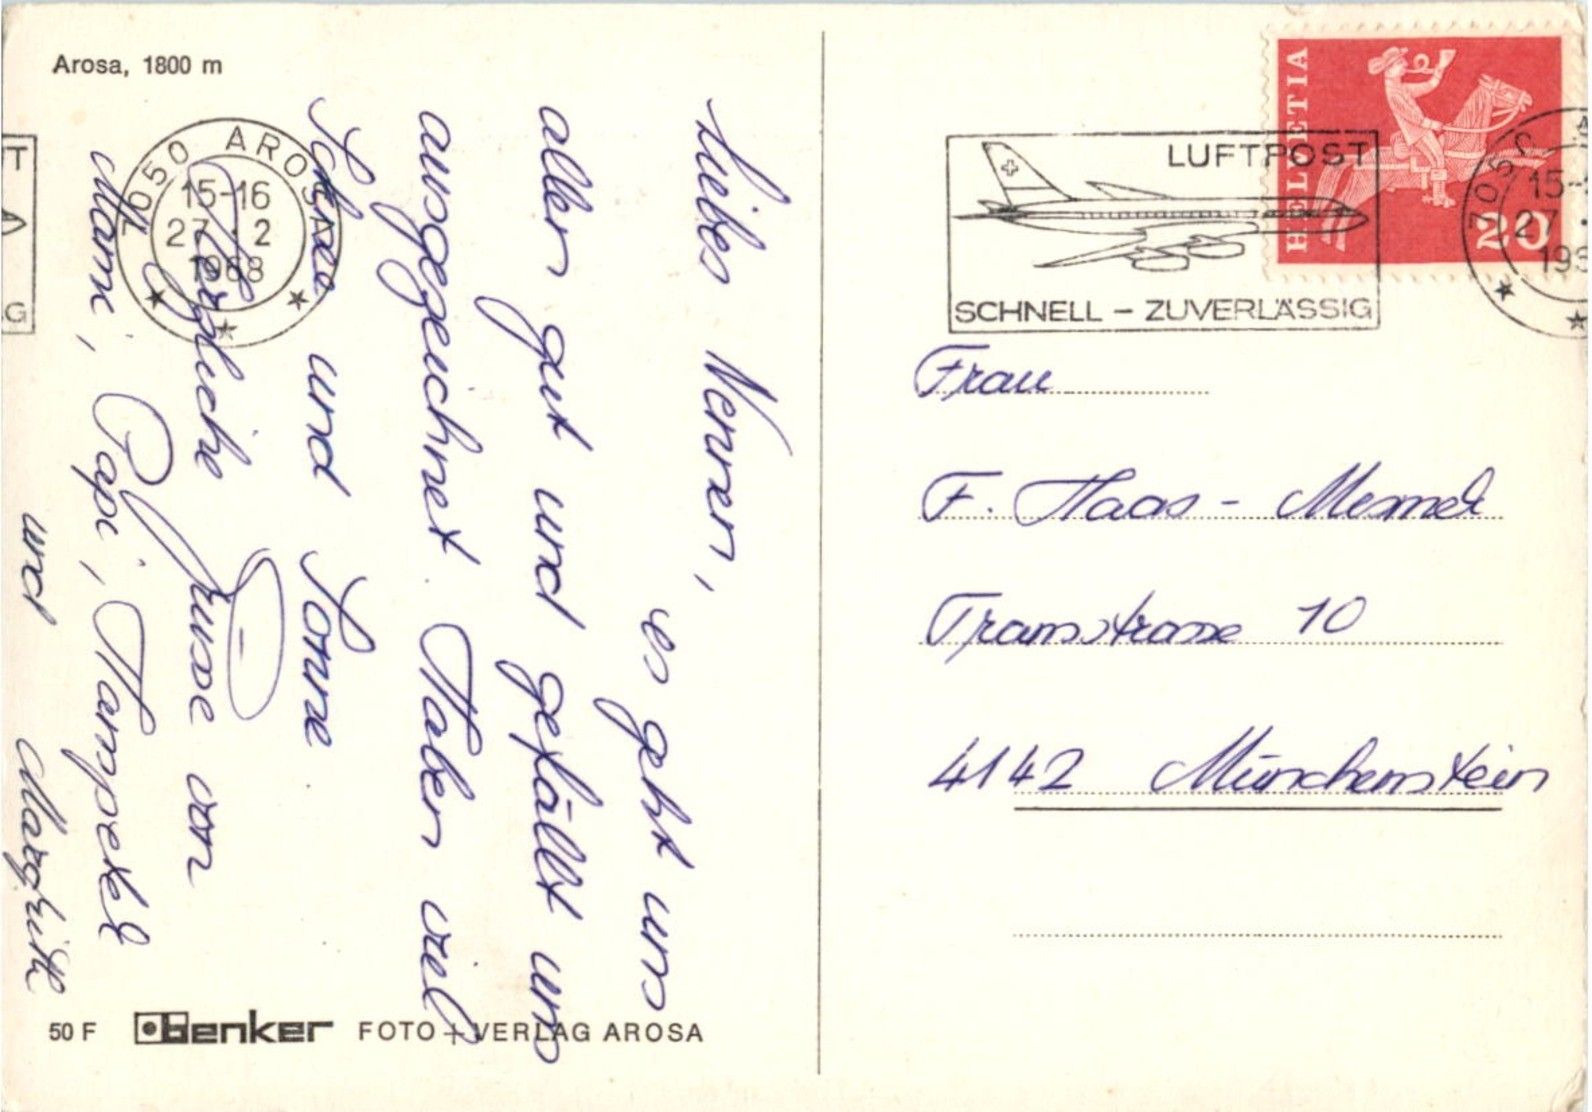 Arosa, 1800 m
7050 AROSA
15-16
27. 2
1968
T
A
G
Liebes Nennen,
es geht uns
allen gut und gefällt uns
ausgezeichnet. Haben viel
Schnee und Sonne
Herzliche Grüsse von
Mami, Papi, Hanspeter
und Margrith
50 F benker FOTO + VERLAG AROSA
LUFTPOST
SCHNELL - ZUVERLÄSSIG
HELVETIA
20
7050 A
15-
27.
196
Frau
F. Haas - Mesmer
Tramstrasse 10
4142 Münchenstein